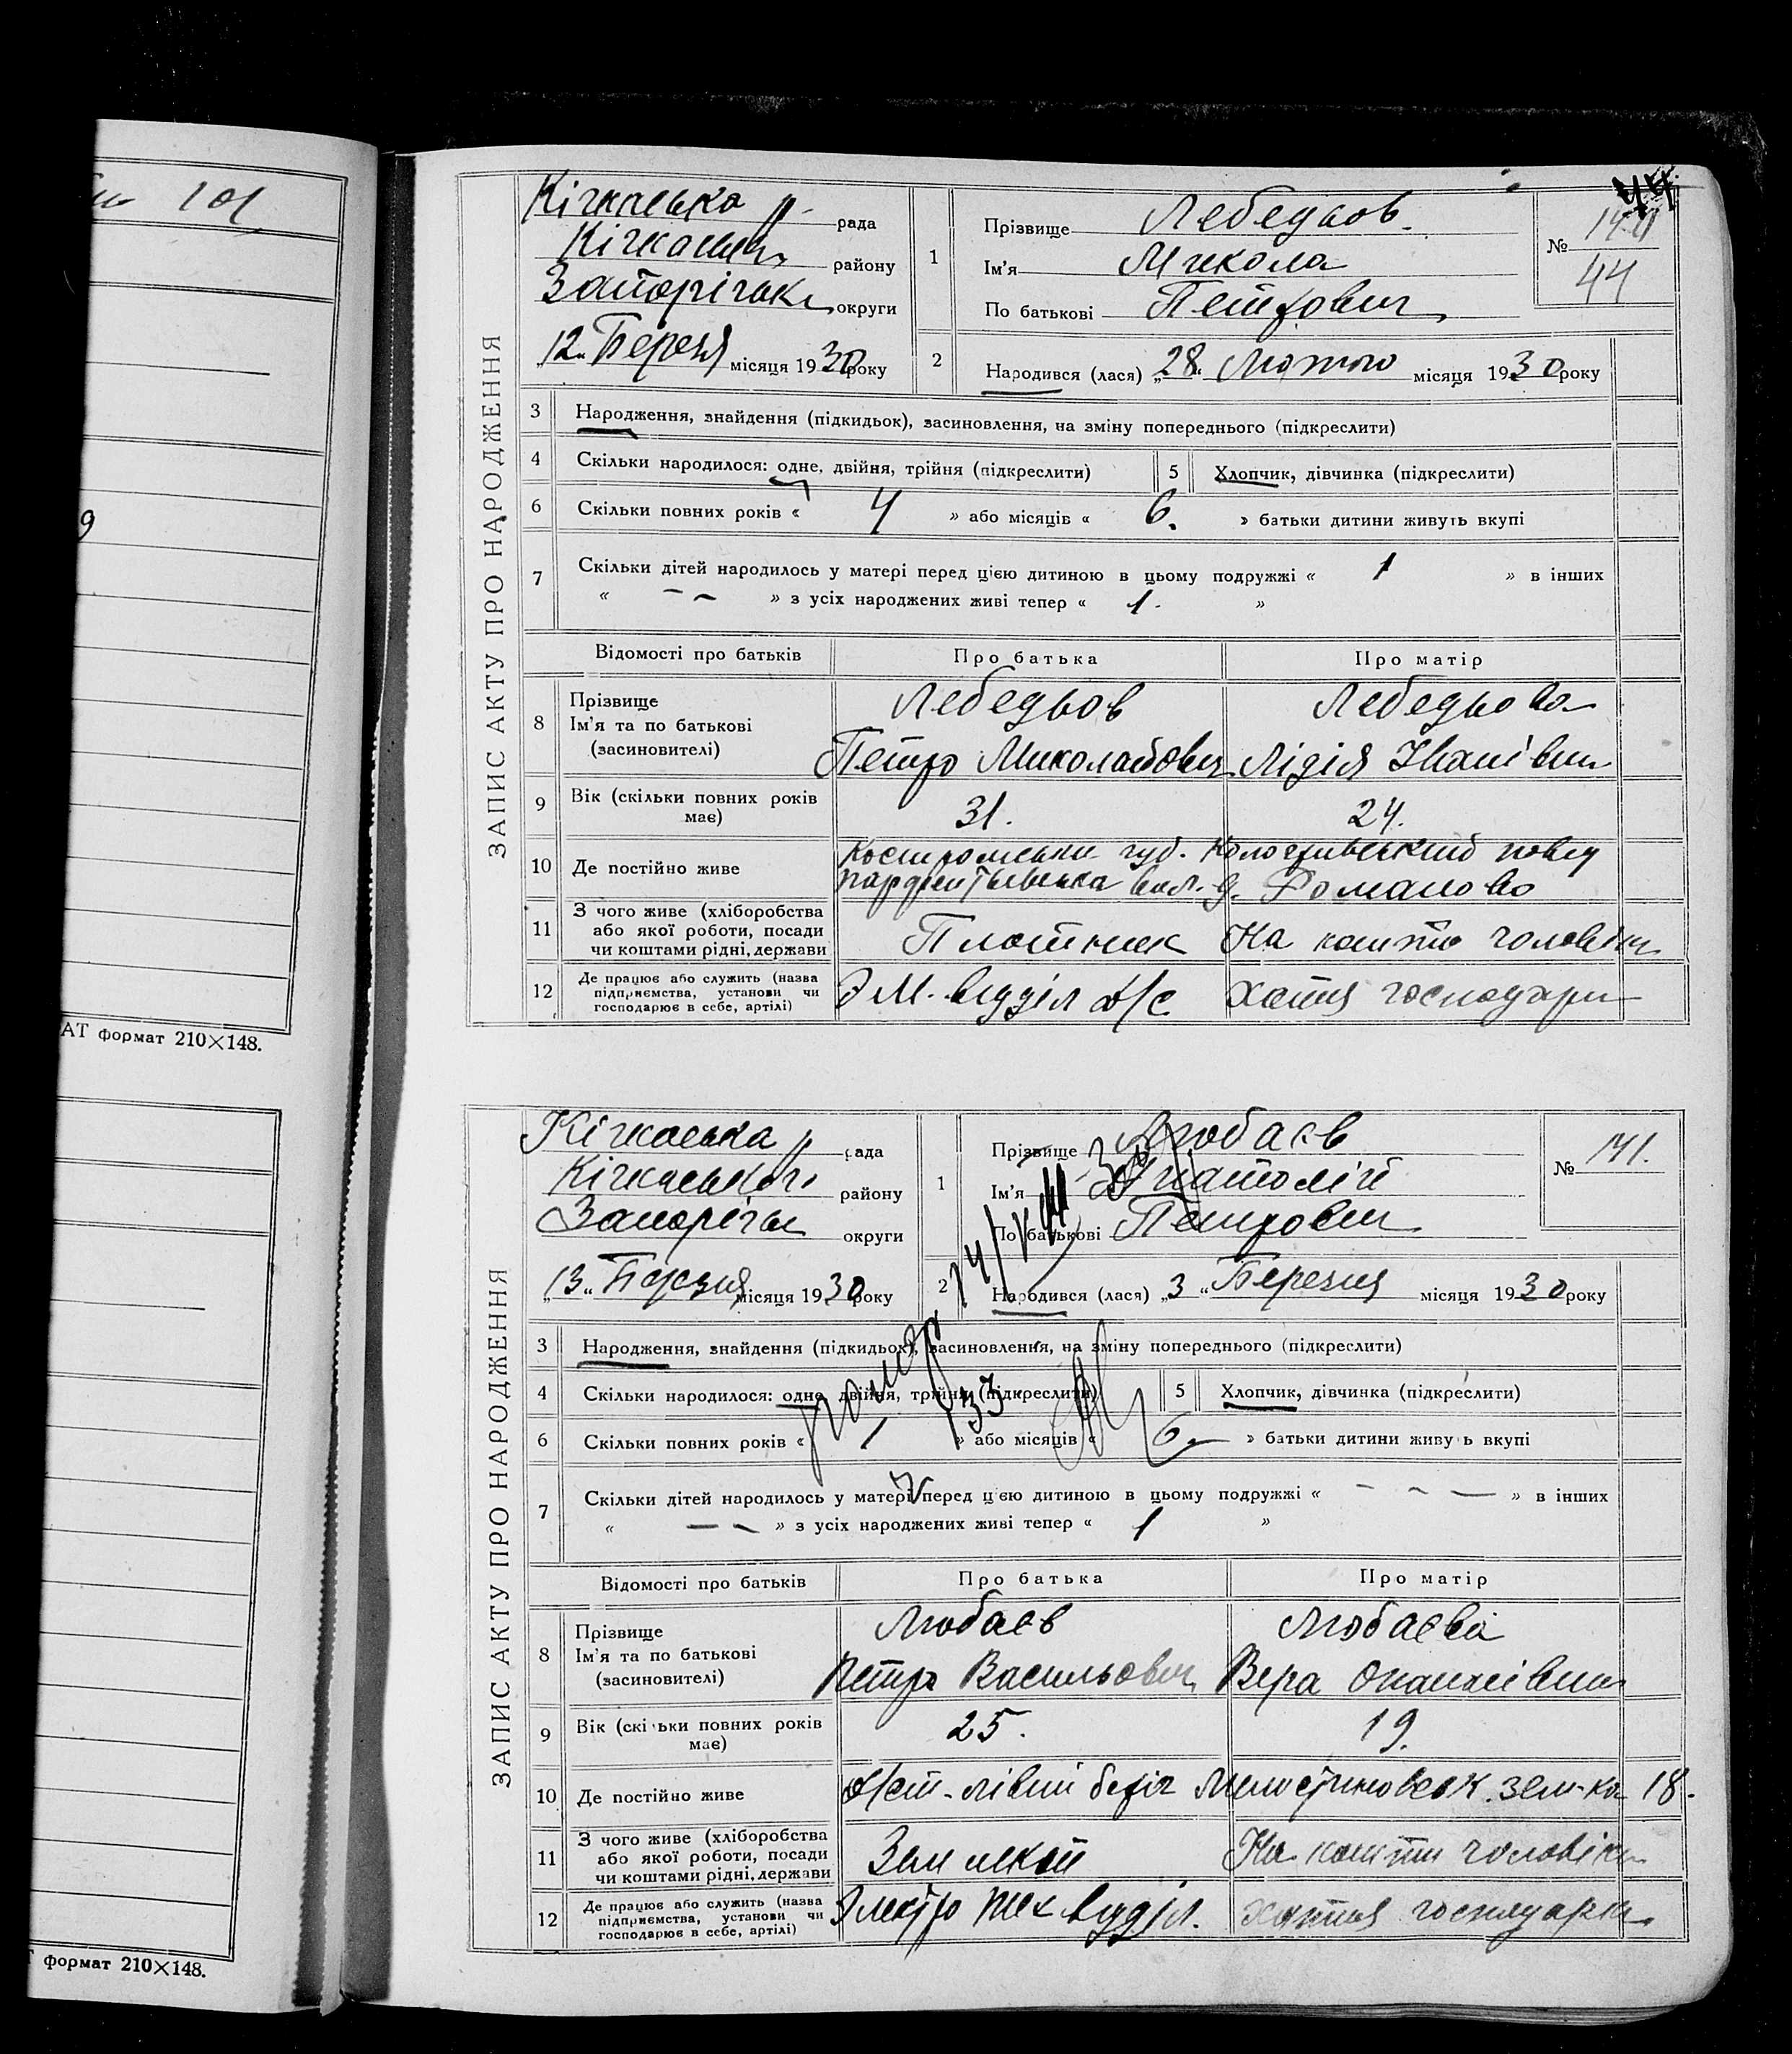 101
9
АТ формат 210×148.
формат 210×148.
44
ЗАПИС АКТУ ПРО НАРОДЖЕННЯ
Кічкаська р. рада
Кічкаськ району
Запорізьк округи
„12“ Березня місяця 1930 року
1
Прізвище Лебедьов.
Ім’я Микола
По батькові Петрович
№
44
2
Народився (лася) „28“ Лютого місяця 1930 року
3 Народження, знайдення (підкидьок), засиновлення, на зміну попереднього (підкреслити)
4 Скільки народилося: одне, двійня, трійня (підкреслити) 5 Хлопчик, дівчинка (підкреслити)
6 Скільки повних років « 4 » або місяців « 6. » батьки дитини живуть вкупі
7 Скільки дітей народилось у матері перед цією дитиною в цьому подружжі « 1 » в інших
« — — » з усіх народжених живі тепер « 1. »
Відомості про батьків Про батька Про матір
8 Прізвище
Ім’я та по батькові
(засиновителі)
Лебедьов Лебедьова
Петро Миколайович Лідія Іванівна
9 Вік (скільки повних років має) 31. 24.
10 Де постійно живе Костромськи губ. Кологривський повід
вол. д. Романово
11 З чого живе (хліборобства
або якої роботи, посади
чи коштами рідні, держави
Плотник На кошти чоловіка
12 Де працює або служить (назва
підприємства, установи чи
господарює в себе, артілі)
Э М. відділ Д/с Хатня господарка
ЗАПИС АКТУ ПРО НАРОДЖЕННЯ
Кічкаська р рада
Кічкаського району
Запорізьк округи
„13“ Березня місяця 1930 року
1
Прізвище Любаєв
Ім’я Анатолій
По батькові Петрович
№ 141.
2
Народився (лася) „3“ Березня місяця 1930 року
3 Народження, знайдення (підкидьок), засиновлення, на зміну попереднього (підкреслити)
4 Скільки народилося: одне, двійня, трійня (підкреслити) 5 Хлопчик, дівчинка (підкреслити)
6 Скільки повних років « 1 » або місяців « 6 » батьки дитини живу ь вкупі
7 Скільки дітей народилось у матері перед цією дитиною в цьому подружжі « — — — » в інших
« — — » з усіх народжених живі тепер « 1 »
Відомості про батьків Про батька Про матір
8 Прізвище
Ім’я та по батькові
(засиновителі)
Любаєв Любаєва
Петро Васильович Вера Опанасівна
9 Вік (скільки повних років має) 25. 19.
10 Де постійно живе лівий беріг зем-ка 18.
11 З чого живе (хліборобства
або якої роботи, посади
чи коштами рідні, держави
Землекоп На кошти чоловіка
12 Де працює або служить (назва
підприємства, установи чи
господарює в себе, артілі)
Электро Мех відділ. хатня господарка